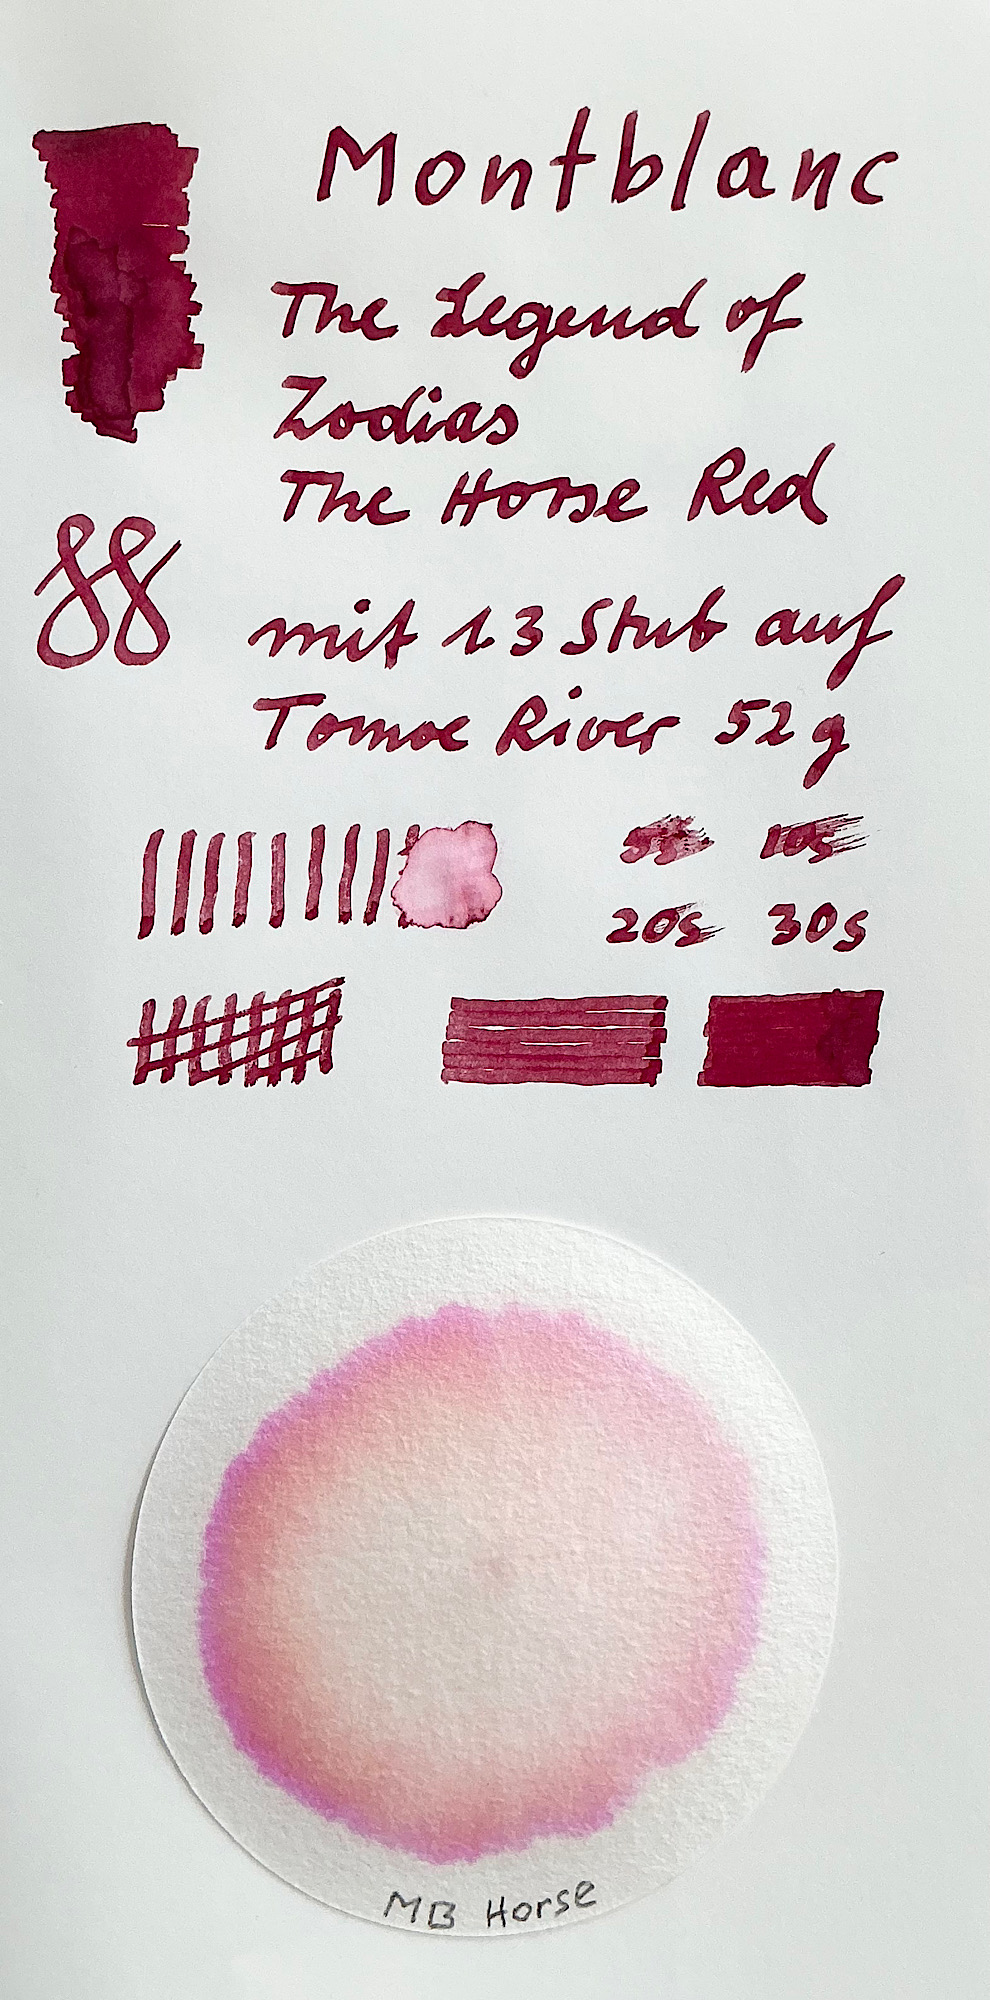 Montblanc
The Legend of
Zodias
The Horse Red
mit 1.3 Stub auf
Tomoe River 52 g
5s 10s
20s 30s
MB Horse